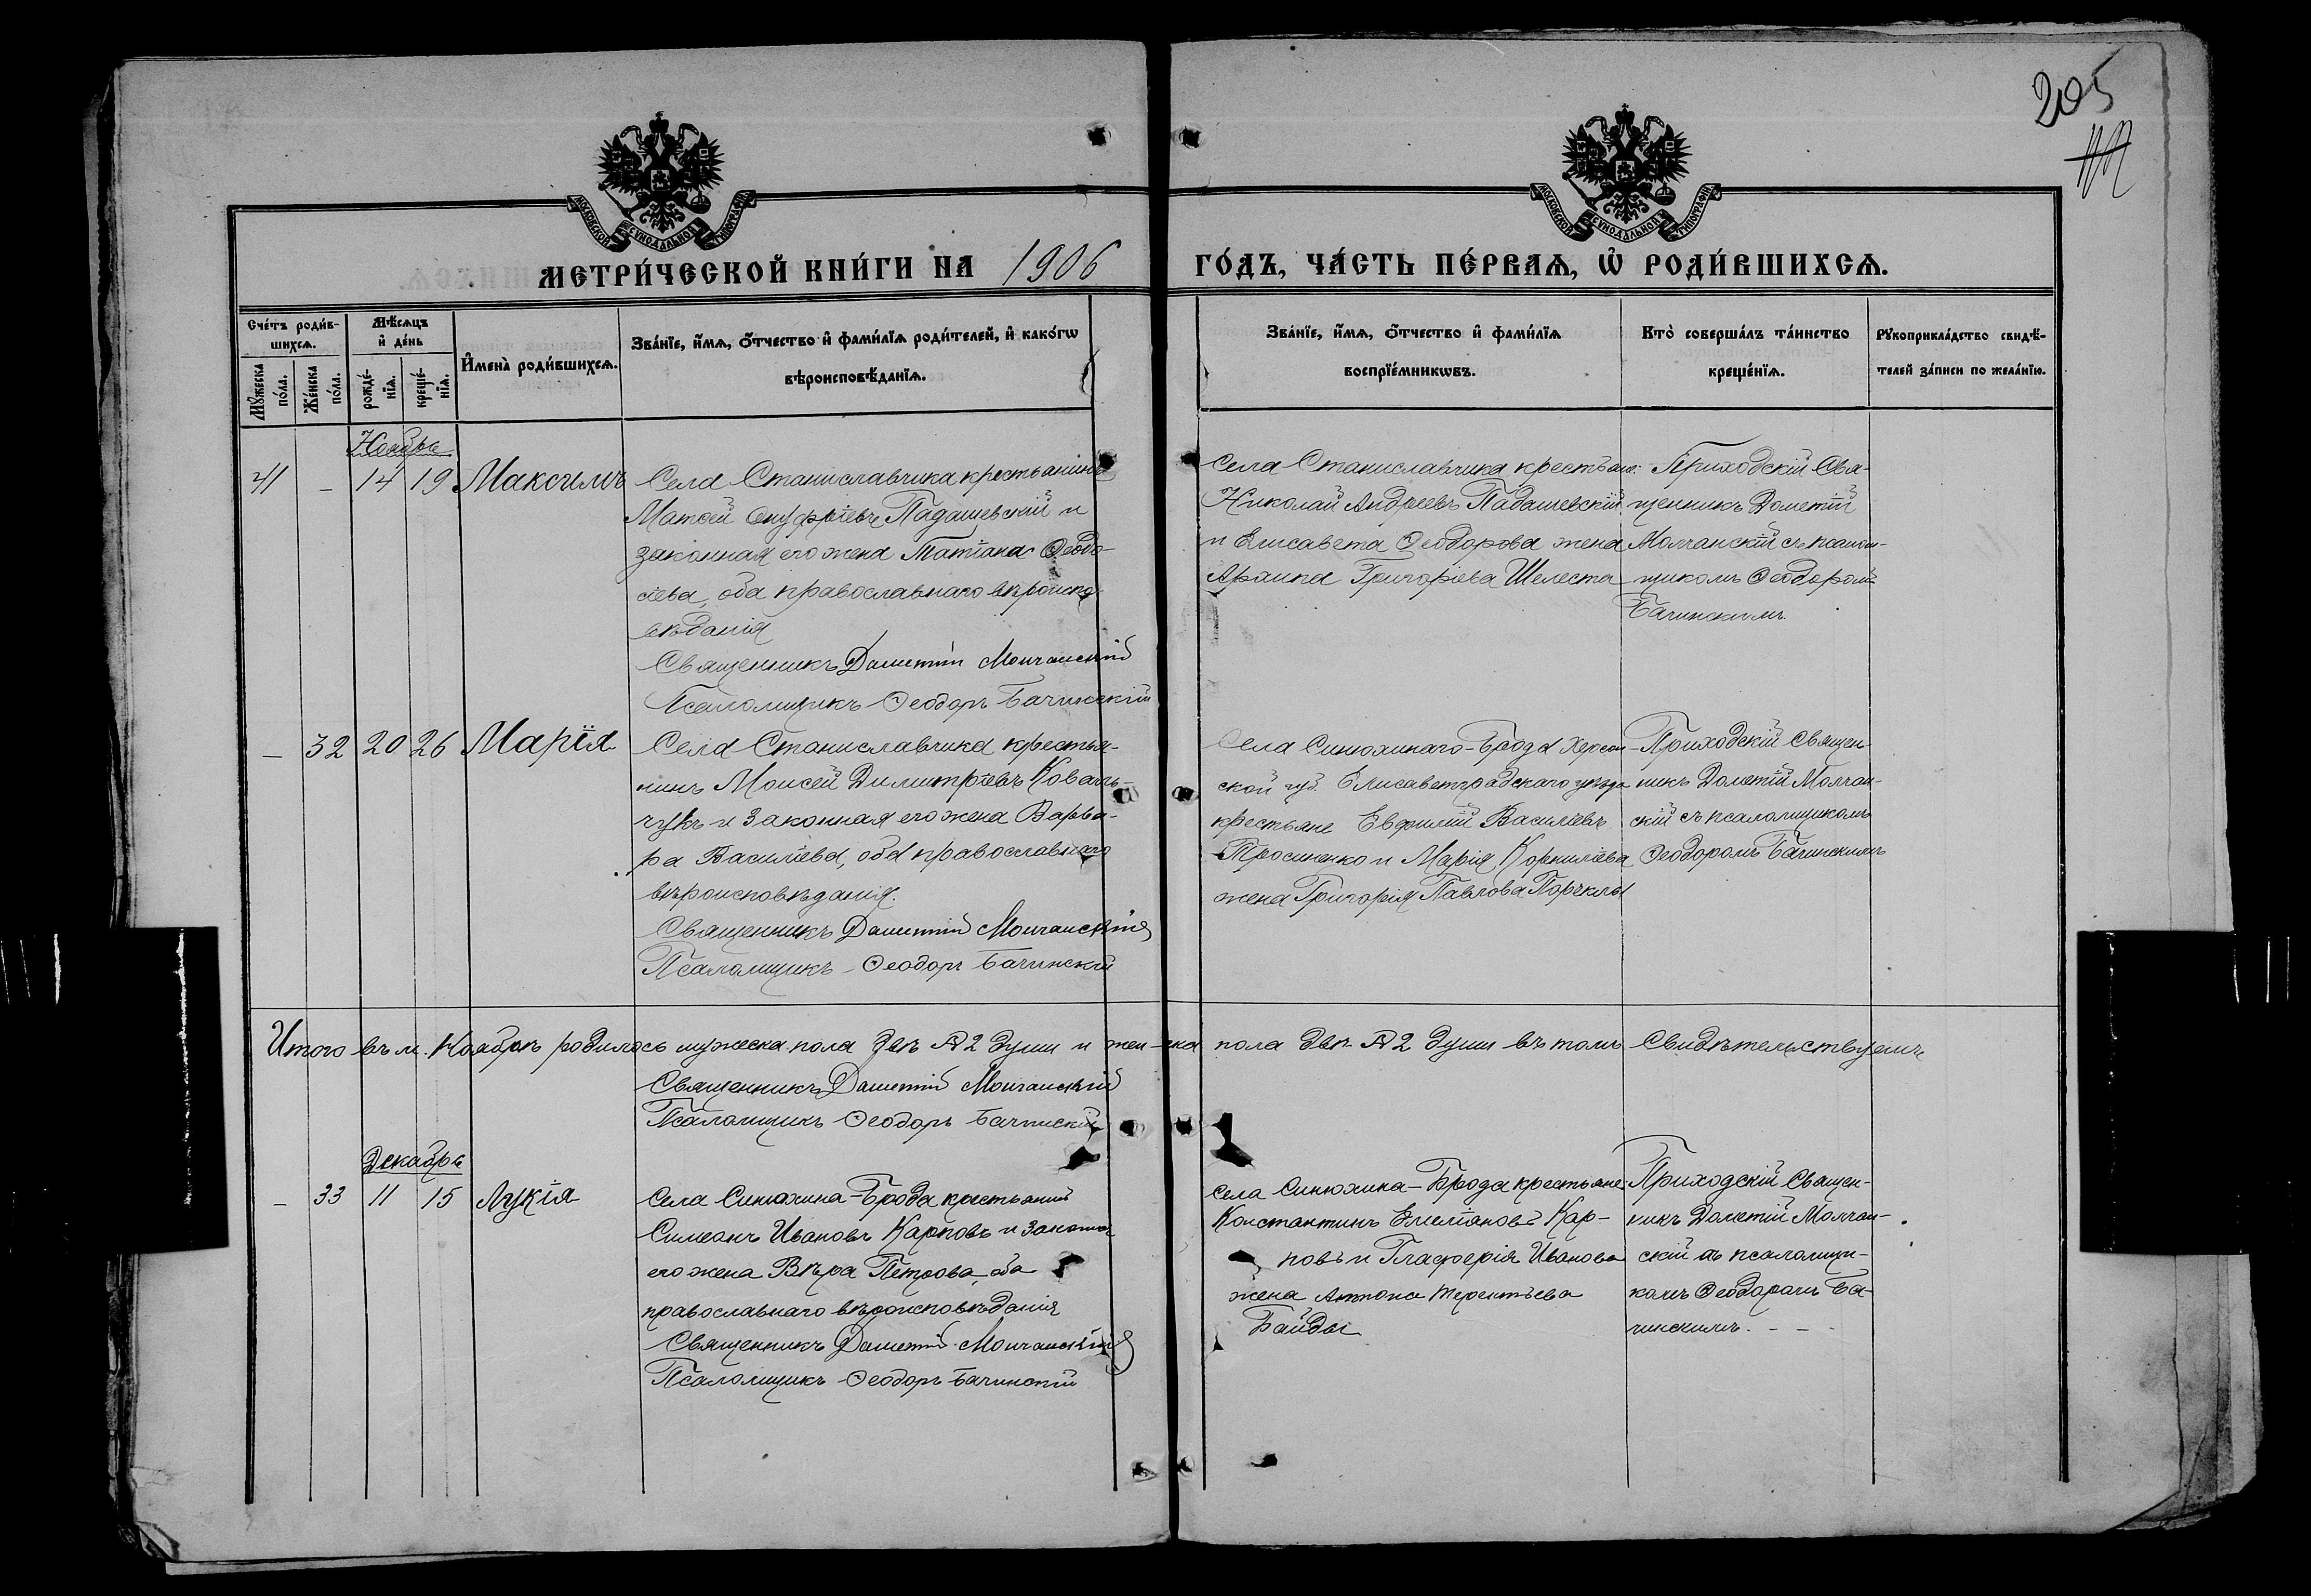 205
МОСКОВСКОЙ СѴНОДАЛЬНОЙ ТИПОГРАФІИ
МОСКОВСКОЙ СѴНОДАЛЬНОЙ ТИПОГРАФІИ
МЕТРИ́ЧЕСКОЙ КНИ́ГИ НА 1906
ГО́ДЪ, ЧА́СТЬ ПЕ́РВАѦ, Ѡ҆ РОДИ́ВШИХСѦ.
Сче́тъ роди́в-
шихсѧ.
Мꙋ́жеска по́ла.
Же́нска по́ла.
Мѣ́сѧцъ
и҆ де́нь
рожде́-
нїѧ.
креще́-
нїѧ.
И҆мена̀ роди́вшихсѧ.
Зва́нїе, и҆́мѧ, ѻ҆́тчество и҆ фами́лїѧ роди́телей, и҆ како́гѡ
вѣроисповѣ́данїѧ.
Зва́нїе, и҆́мѧ, ѻ҆́тчество и҆ фами́лїѧ
воспрїе́мникѡвъ.
Кто̀ соверша́лъ та́инство
креще́нїѧ.
Рꙋкоприкла́дство свидѣ́-
телей за́писи по жела́нїю.
Ноябрь
41 – 14 19 Максимъ
Села Станиславчика крестьянинъ
Матѳей Онуфріевъ Падашевскій и
законная его жена Татіана Ѳеодо-
сіева, оба православнаго вѣроиспо-
вѣданія
Священникъ Дометій Молчанскій
Псаломщикъ Ѳеодоръ Бачинскій
Села Станиславчика крестьяне:
Николай Андреевъ Падашевскій
и Елисавета Ѳеодорова жена
Григоріева Шелеста
Приходскій Свя-
щенникъ Дометій
Молчанскій съ псалом-
щикомъ Ѳеодоромъ
Бачинскимъ.
– 32 20 26 Марія
Села Станиславчика крестья-
нинъ Моисей Димитріевъ Коваль-
чукъ и законная его жена Варва-
ра Василіева, оба православнаго
вѣроисповѣданія.
Священникъ Дометій Молчанскій
Псаломщикъ Ѳеодоръ Бачинскій
Села Синюхинаго-Брода Херсон-
ской губ. Елисаветградскаго уѣзда
крестьяне Евфимій Василіевъ
Тросиненко и Марія Корниліева
жена Григорія Павлова
Приходскій Священ-
никъ Дометій Молчан-
скій съ псаломщикомъ
Ѳеодоромъ Бачинскимъ
Итого въ м. Ноябрѣ родилось мужеска пола двѣ 2 души и жен-ска пола двѣ 2 души въ томъ Свидѣтельствуемъ
Священникъ Дометій Молчанскій
Псаломщикъ Ѳеодоръ Бачинскій
Декабрь
– 33 11 15 Лукія
Села Синюхина-Брода крестьянинъ
Симеонъ Ивановъ Карповъ и законная
его жена Вѣра Петрова, оба
православнаго вѣроисповѣданія
Священникъ Дометій Молчанскій
Псаломщикъ Ѳеодоръ Бачинскій
Села Синюхина-Брода крестьяне:
Константинъ Емеліановъ Кар-
повъ и Глафирія Иванова
жена Антона Терентьева
Байды
Приходскій Священ-
никъ Дометій Молчан-
скій съ псаломщи-
комъ Ѳеодоромъ Ба-
чинскимъ.